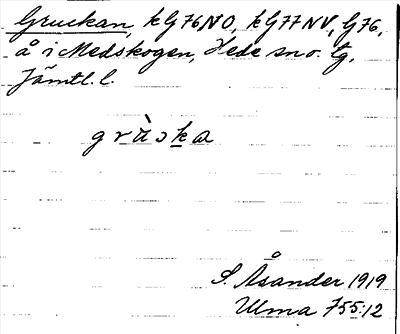 Gruckan, k G76NO, k G77NV, G76,
å i Medskogen, Hede sno. tg,
Jämtl. l.
S. Åsander 1919
Ulma 755:12